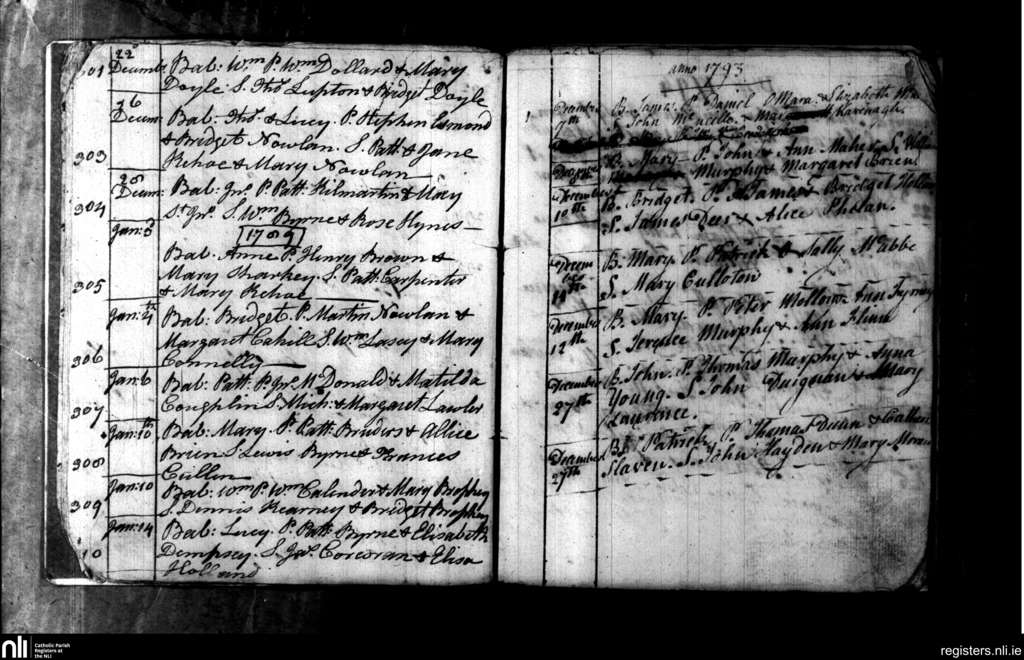 22d
301 Decembr Bab: Wm P. Wm Dollard & Mary
Doyle S. Thos Lupton & Bridget Doyle
26
Decem: Bab: Thos: & Lucy. P. Stephen Esmond
& Bridget Nowlan. S. Patt: & Jane
303 Kehoe & Mary Nowlan
28
Decem: Bab: Jno. P. Patt: Kilmartin & May
304 St Jno. S. Wm Byrne & Rose Hynes
Jan: 3
1789
Bab: Anne P. Henry Brown &
Mary Sharkey S. Patt: Carpenter
305 & Mary Kehoe
Jan: 4th Bab: Bridget P. Martin Nowlan &
Margaret Cahill S. Wm Lasey & Mary
306 Connelly
Jan: 6 Bab: Patt: P. Jno. Mc Donald & Matilda
307 Coughlin S. Mich: & Margaret Lawler
Jan: 10th Bab: Mary. P. Patt: Bruders & Allice
308 Brien S. Lewis Byrne & Frances
Cullen
Jan: 10 Bab: Wm P. Wm Calinder & Mary Brophey
309 S. Dennis Kearney & Bridget Brophey
Jan: 14 Bab: Lucy. P. Patt: Byrne & Elisabeth
10 Dempsey. S. Jno. Corcoran & Elisa
Holland
anno 1793
1 Decembre 9th B. James P. Daniel O Mara & Elizabeth
S. John & Kavenagh
B. Mary P. John & Ann Maher S.
Murphy & Margaret Brien
December 10th B. Bridget. P. James & Bridget
S. James Deer & Alice Phelan.
Decem B. Mary P. Patrick & Sally McCabe
S. Mary Culloton
December 12th B. Mary. P. Peter
S. Terence Murphy & Ann
December 27th B. John. P. Thomas Murphy & Ayna
Young. S. John Duignan & Mary
Lawrence.
December 27th B. Patrick P. Thomas Dunn &
Slaven. S. John Hayden & Mary
nli Catholic Parish
Registers at
the NLI
registers.nli.ie